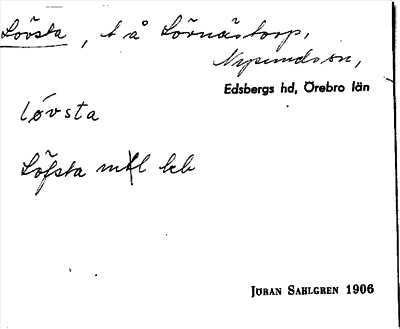 Lövsta, t å Lörnästorp,
Nysundssn,
Edsbergs hd, Örebro län
lǿvsta
Löfsta mtl kb
JÖRAN SAHLGREN 1906